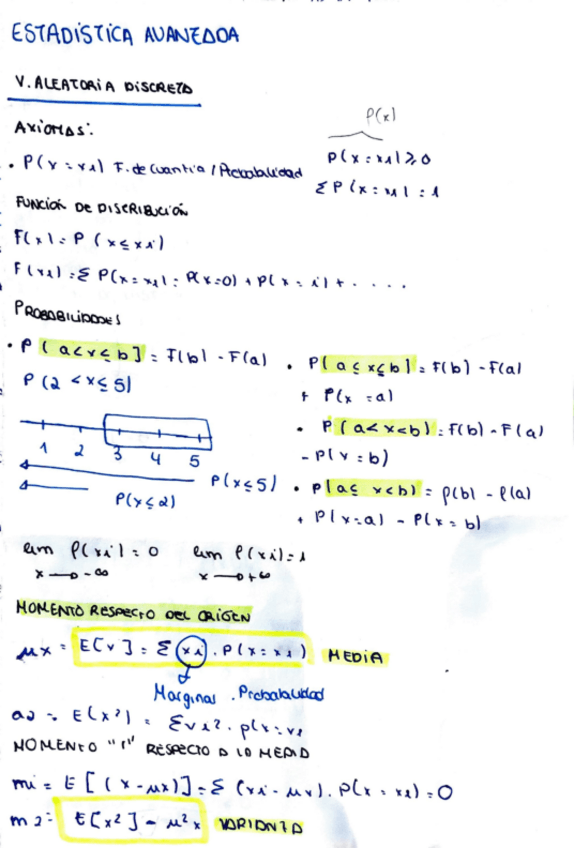 ESTADÍSTICA AVANZADA
V. ALEATORIA DISCRETA
P(x)
Axiomas:
• P(x = xi) F. de Cuantía / Probabilidad
P(x = xi) ≥ 0
Σ P(x = xi) = 1
FUNCIÓN DE DISCRIBUCIÓN
F(x) = P (x ≤ xi)
F(xi) = Σ P(x = xi) = P(x=0) + P(x = i) + . . . .
PROBABILIDADES
• P (a<x≤b] = F(b) - F(a)
P (2 < x ≤ 5)
1 2 3 4 5
P(x≤5)
P(x≤2)
• P[a ≤ x ≤ b] = F(b) - F(a)
+ P(x = a)
• P (a < x < b) = F(b) - F(a)
- P(x = b)
• P[a ≤ x < b) = P(b) - P(a)
+ P(x = a) - P(x = b)
lim P(xi) = 0 lim P(xi) = 1
x → -∞ x → +∞
MOMENTO RESPECTO DEL ORIGEN
μx = E[x] = Σ xi . P(x = xi) MEDIA
Marginal . Probabilidad
a2 = E(x²) = Σ xi² . p(x = xi
MOMENTO "r" RESPECTO A LA MEDIA
mi = E [ (x - μx)] = Σ (xi - μx) . P(x = xi) = 0
m2 = E[x²] - μ²x VARIANZA